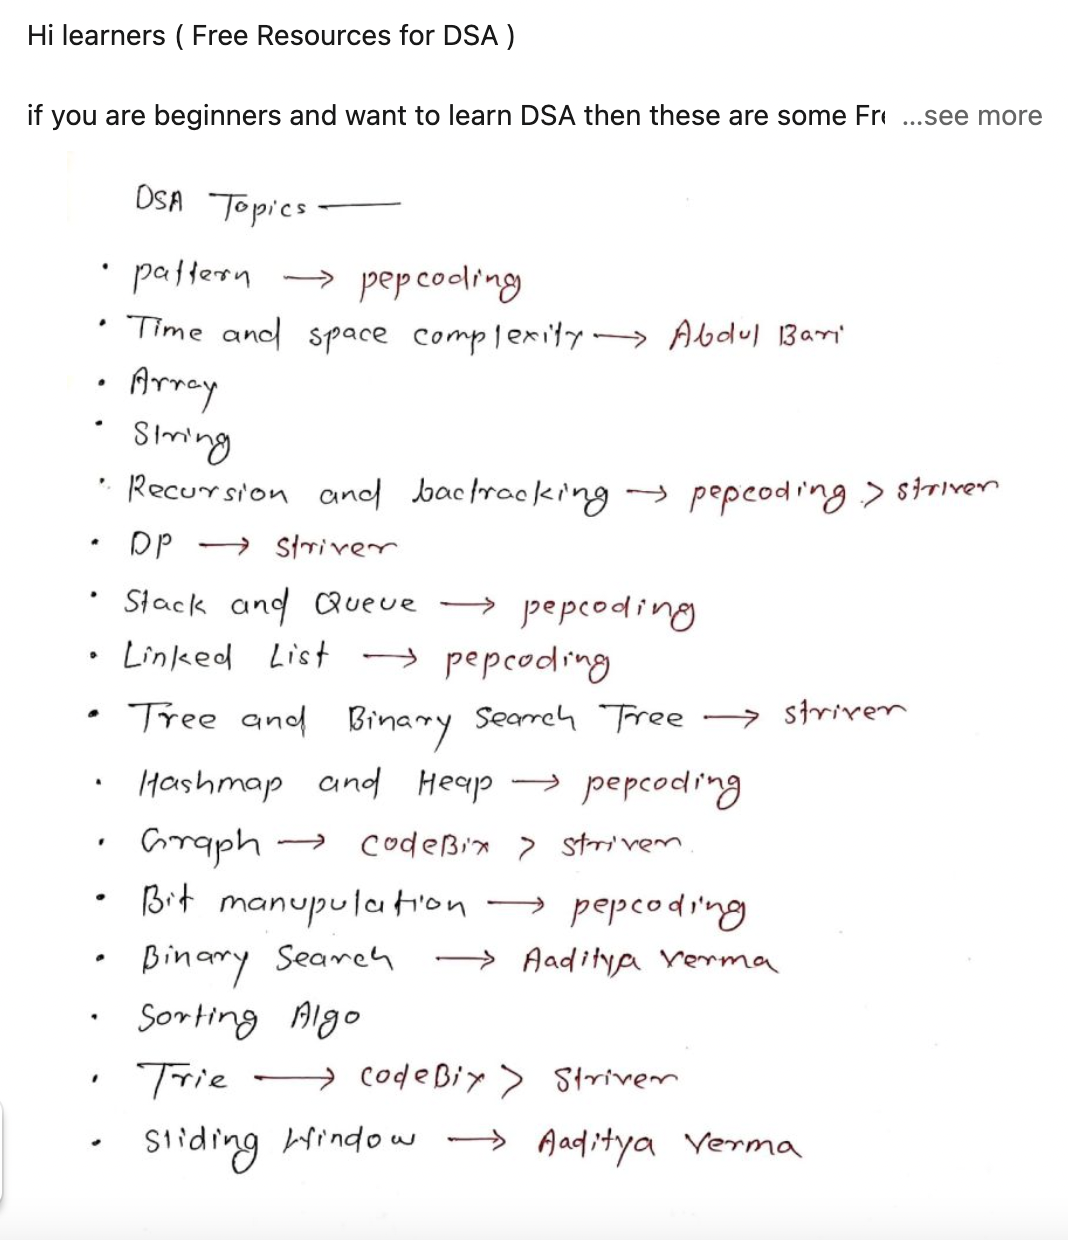 Hi learners ( Free Resources for DSA )
if you are beginners and want to learn DSA then these are some Fre ...see more
DSA Topics —
• pattern → pepcoding
• Time and space complexity → Abdul Bari
• Array
• String
• Recursion and bactracking → pepcoding > striver
• DP → Striver
• Stack and Queue → pepcoding
• Linked List → pepcoding
• Tree and Binary Search Tree → striver
• Hashmap and Heap → pepcoding
• Graph → codeBix > striver
• Bit manupulation → pepcoding
• Binary Search → Aaditya verma
• Sorting Algo
• Trie → codeBix > Striver
• Sliding Window → Aaditya Verma